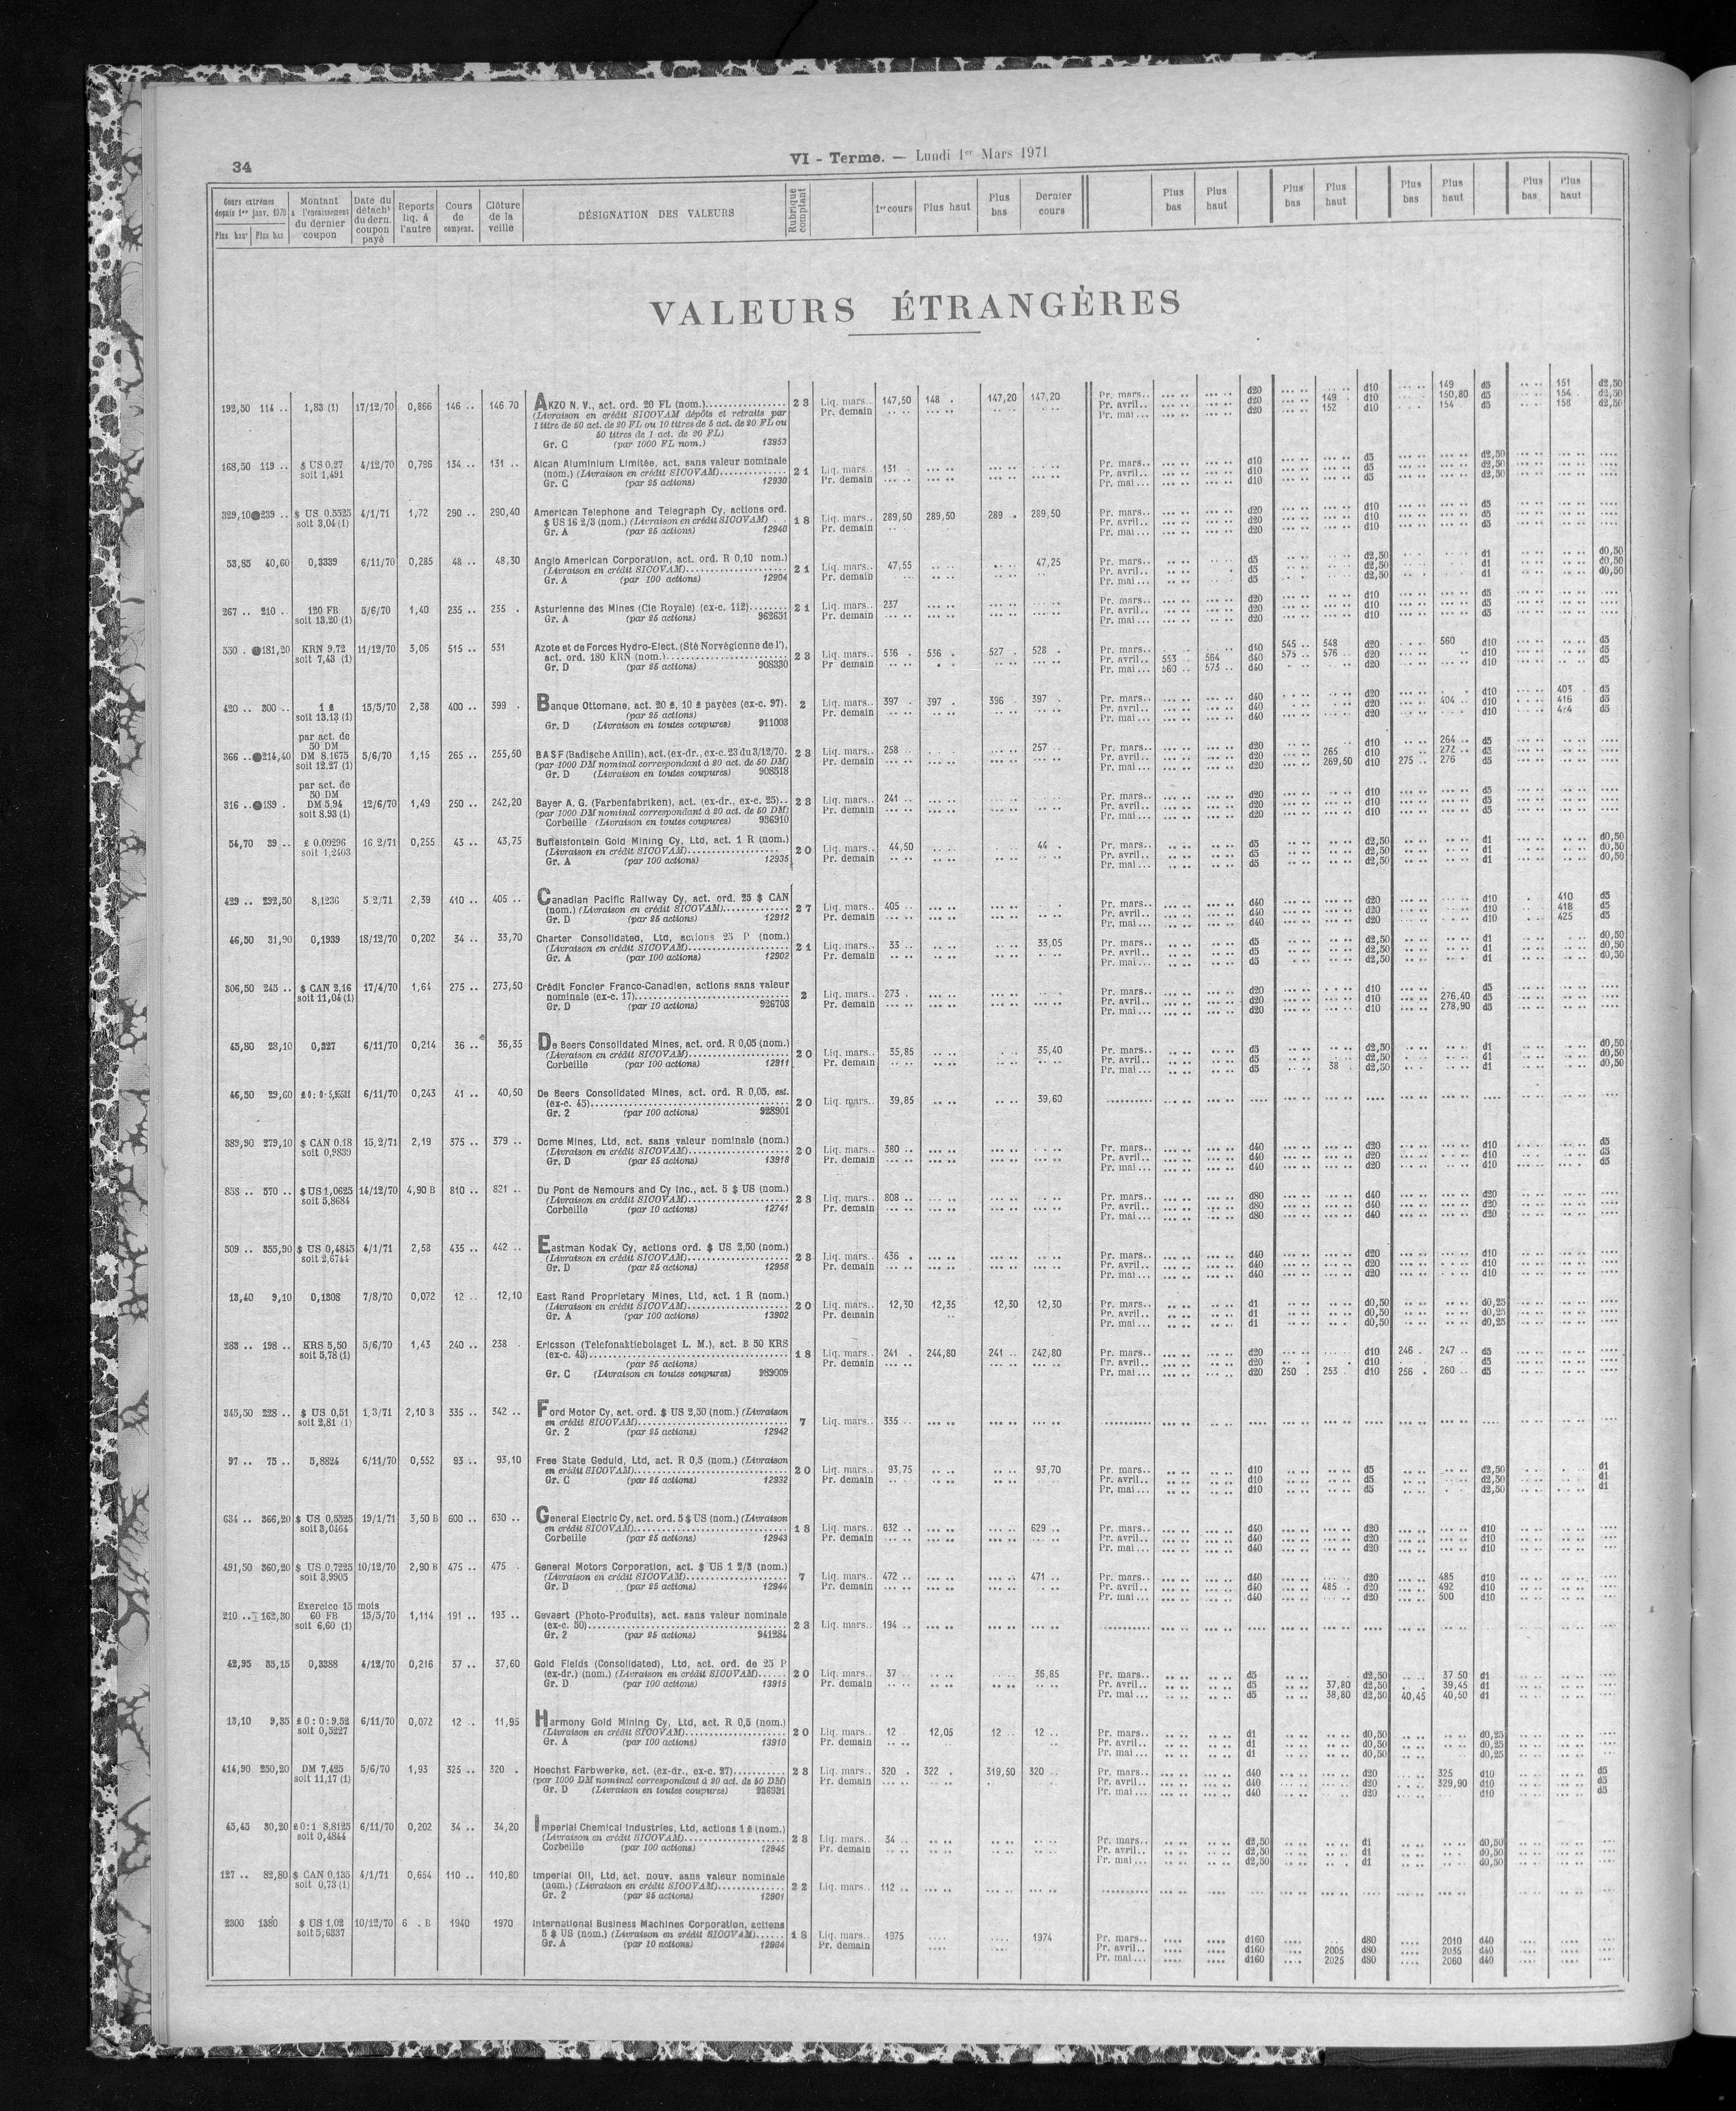 34
VI - Terme. — Lundi 1er Mars 1971
Cours extrêmes depuis 1er janv. 1970 Plus haut Plus bas | Montant à l'encaissement du dernier coupon | Date du détach^t du dern. coupon payé | Reports liq. à l'autre | Cours de compens. | Clôture de la veille | DÉSIGNATION DES VALEURS | Rubrique comptant | 1er cours | Plus haut | Plus bas | Dernier cours | Plus bas | Plus haut | Plus bas | Plus haut | Plus bas | Plus haut | Plus bas | Plus haut
VALEURS ÉTRANGÈRES
192,50 114 .. 1,83 (1) 17/12/70 0,866 146 .. 146 70 AKZO N. V., act. ord. 20 FL (nom.) 23 Liq. mars.. 147,50 148 . 147,20 147,20 Pr. mars.. d20 d10 149 d5 151 d2,50
(Livraison en crédit SICOVAM dépôts et retraits par Pr. demain Pr. avril.. d20 149 . d10 150,80 d5 154 . d2,50
1 titre de 50 act. de 20 FL ou 10 titres de 5 act. de 20 FL ou Pr. mai... d20 152 d10 154 d5 158 d2,50
50 titres de 1 act. de 20 FL)
Gr. C (par 1000 FL nom.) 13953
168,50 119 .. $ US 0,27 soit 1,491 4/12/70 0,796 134 .. 131 .. Alcan Aluminium Limitée, act. sans valeur nominale 21 Liq. mars.. 131 Pr. mars.. d10 d5 d2,50
(nom.) (Livraison en crédit SICOVAM) Pr. demain Pr. avril.. d10 d5 d2,50
Gr. C (par 25 actions) 12930 Pr. mai... d10 d5 d2,50
329,10 239 .. $ US 0,5525 soit 3,04 (1) 4/1/71 1,72 290 .. 290,40 American Telephone and Telegraph Cy, actions ord. 18 Liq. mars.. 289,50 289,50 289 . 289,50 Pr. mars.. d20 d10 d5
$ US 16 2/3 (nom.) (Livraison en crédit SICOVAM) Pr. demain Pr. avril.. d20 d10 d5
Gr. A (par 25 actions) 12940 Pr. mai... d20 d10 d5
53,85 40,60 0,3339 6/11/70 0,285 48 .. 48,30 Anglo American Corporation, act. ord. R 0,10 nom.) 21 Liq. mars.. 47,55 47,25 Pr. mars.. d5 d2,50 d1 d0,50
(Livraison en crédit SICOVAM) Pr. demain Pr. avril.. d5 d2,50 d1 d0,50
Gr. A (par 100 actions) 12904 Pr. mai... d5 d2,50 d1 d0,50
267 .. 210 .. 120 FB soit 13,20 (1) 5/6/70 1,40 235 .. 235 . Asturienne des Mines (Cie Royale) (ex-c. 112) 21 Liq. mars.. 237 Pr. mars.. d20 d10 d5
Gr. A (par 25 actions) 962651 Pr. demain Pr. avril.. d20 d10 d5
Pr. mai... d20 d10 d5
550 . 181,20 KRN 9,72 soit 7,43 (1) 11/12/70 3,06 515 .. 531 Azote et de Forces Hydro-Elect. (Sté Norvégienne de l'), 23 Liq. mars.. 536 . 536 . 527 . 528 . Pr. mars.. d40 545 .. 548 d20 560 d10 d5
act. ord. 180 KRN (nom.) Pr. demain Pr. avril.. 553 564 d40 575 .. 576 .. d20 d10 d5
Gr. D (par 25 actions) 908330 Pr. mai... 560 .. 573 .. d40 d20 d10 d5
420 .. 300 .. 1 £ soit 13,13 (1) 15/5/70 2,38 400 .. 399 . Banque Ottomane, act. 20 £, 10 £ payées (ex-c. 97). 2 Liq. mars.. 397 . 397 . 396 . 397 . Pr. mars.. d40 d20 d10 403 . d5
(par 25 actions) Pr. demain Pr. avril.. d40 d20 404 .. d10 416 d5
Gr. D (Livraison en toutes coupures) 911003 Pr. mai... d40 d20 d10 424 d5
366 .. 214,40 par act. de 50 DM DM 8,1675 soit 12,27 (1) 5/6/70 1,15 265 .. 255,50 BASF (Badische Anilin), act. (ex-dr., ex-c. 23 du 3/12/70. 23 Liq. mars.. 258 257 .. Pr. mars.. d20 d10 264 .. d5
(par 1000 DM nominal correspondant à 20 act. de 50 DM) Pr. demain Pr. avril.. d20 265 d10 272 .. d5
Gr. D (Livraison en toutes coupures) 908518 Pr. mai... d20 269,50 d10 275 .. 276 d5
316 .. 139 . par act. de 50 DM DM 5,94 soit 8,93 (1) 12/6/70 1,49 250 .. 242,20 Bayer A. G. (Farbenfabriken), act. (ex-dr., ex-c. 25).. 23 Liq. mars.. 241 Pr. mars.. d20 d10 d5
(par 1000 DM nominal correspondant à 20 act. de 50 DM) Pr. demain Pr. avril.. d20 d10 d5
Corbeille (Livraison en toutes coupures) 936910 Pr. mai... d20 d10 d5
54,70 39 .. £ 0,09296 soit 1,2403 16/2/71 0,255 43 .. 43,75 Buffelsfontein Gold Mining Cy, Ltd, act. 1 R (nom.) 20 Liq. mars.. 44,50 44 . Pr. mars.. d5 d2,50 d1 d0,50
(Livraison en crédit SICOVAM) Pr. demain Pr. avril.. d5 d2,50 d1 d0,50
Gr. A (par 100 actions) 12935 Pr. mai... d5 d2,50 d1 d0,50
429 .. 292,50 8,1236 5/2/71 2,39 410 .. 405 .. Canadian Pacific Railway Cy, act. ord. 25 $ CAN 27 Liq. mars.. 405 .. Pr. mars.. d40 d20 d10 410 d5
(nom.) (Livraison en crédit SICOVAM) Pr. demain Pr. avril.. d40 d20 d10 418 d5
Gr. D (par 25 actions) 12912 Pr. mai... d40 d20 d10 425 d5
46,50 31,90 0,1939 18/12/70 0,202 34 .. 33,70 Charter Consolidated, Ltd, actions 25 P (nom.) 21 Liq. mars.. 33 .. 33,05 Pr. mars.. d5 d2,50 d1 d0,50
(Livraison en crédit SICOVAM) Pr. demain Pr. avril.. d5 d2,50 d1 d0,50
Gr. A (par 100 actions) 12902 Pr. mai... d5 d2,50 d1 d0,50
306,50 245 .. $ CAN 2,16 soit 11,04 (1) 17/4/70 1,64 275 .. 273,50 Crédit Foncier Franco-Canadien, actions sans valeur 2 Liq. mars.. 273 . Pr. mars.. d20 d10 d5
nominale (ex-c. 17) Pr. demain Pr. avril.. d20 d10 276,40 d5
Gr. D (par 10 actions) 926703 Pr. mai... d20 d10 278,90 d5
45,80 28,10 0,327 6/11/70 0,214 36 .. 36,35 De Beers Consolidated Mines, act. ord. R 0,05 (nom.) 20 Liq. mars.. 35,85 35,40 Pr. mars.. d5 d2,50 d1 d0,50
(Livraison en crédit SICOVAM) Pr. demain Pr. avril.. d5 d2,50 d1 d0,50
Corbeille (par 100 actions) 12911 Pr. mai... d5 38 . d2,50 d1 d0,50
46,50 29,60 6/11/70 0,243 41 .. 40,50 De Beers Consolidated Mines, act. ord. R 0,05, est. 20 Liq. mars.. 39,85 39,60
(ex-c. 45)
Gr. 2 (par 100 actions) 928901
389,90 279,10 $ CAN 0,18 soit 0,9839 15/2/71 2,19 375 .. 379 .. Dome Mines, Ltd, act. sans valeur nominale (nom.) 20 Liq. mars.. 380 .. Pr. mars.. d40 d20 d10 d5
(Livraison en crédit SICOVAM) Pr. demain Pr. avril.. d40 d20 d10 d5
Gr. D (par 25 actions) 13918 Pr. mai... d40 d20 d10 d5
858 .. 570 .. $ US 1,0625 soit 5,8684 14/12/70 4,90 B 810 .. 821 .. Du Pont de Nemours and Cy Inc., act. 5 $ US (nom.) 28 Liq. mars.. 808 .. Pr. mars.. d80 d40 d20
(Livraison en crédit SICOVAM) Pr. demain Pr. avril.. d80 d40 d20
Corbeille (par 10 actions) 12741 Pr. mai... d80 d40 d20
509 .. 355,90 $ US 0,4845 soit 2,6744 4/1/71 2,58 435 .. 442 .. Eastman Kodak Cy, actions ord. $ US 2,50 (nom.) 28 Liq. mars.. 436 . Pr. mars.. d40 d20 d10
(Livraison en crédit SICOVAM) Pr. demain Pr. avril.. d40 d20 d10
Gr. D (par 25 actions) 12958 Pr. mai... d40 d20 d10
13,40 9,10 0,1308 7/8/70 0,072 12 .. 12,10 East Rand Proprietary Mines, Ltd, act. 1 R (nom.) 20 Liq. mars.. 12,30 12,35 12,30 12,30 Pr. mars.. d1 d0,50 d0,25
(Livraison en crédit SICOVAM) Pr. demain Pr. avril.. d1 d0,50 d0,25
Gr. A (par 100 actions) 13902 Pr. mai... d1 d0,50 d0,25
283 .. 198 .. KRS 5,50 soit 5,78 (1) 5/6/70 1,43 240 .. 238 . Ericsson (Telefonaktiebolaget L. M.), act. B 50 KRS 18 Liq. mars.. 241 . 244,80 241 .. 242,80 Pr. mars.. d20 d10 246 . 247 .. d5
(ex-c. 43) Pr. demain Pr. avril.. d20 d10 d5
(par 25 actions) Pr. mai... d20 250 . 253 d10 256 . 260 .. d5
Gr. C (Livraison en toutes coupures) 989009
345,50 228 .. $ US 0,51 soit 2,81 (1) 1/3/71 2,10 B 335 .. 342 .. Ford Motor Cy, act. ord. $ US 2,50 (nom.) (Livraison 7 Liq. mars.. 335
en crédit SICOVAM)
Gr. 2 (par 25 actions) 12942
97 .. 75 .. 5,8824 6/11/70 0,552 93 .. 93,10 Free State Geduld, Ltd, act. R 0,5 (nom.) (Livraison 20 Liq. mars.. 93,75 93,70 Pr. mars.. d10 d5 d2,50 d1
en crédit SICOVAM) Pr. demain Pr. avril.. d10 d5 d2,50 d1
Gr. C (par 25 actions) 12932 Pr. mai... d10 d5 d2,50 d1
634 .. 366,20 $ US 0,5525 soit 3,0464 19/1/71 3,50 B 600 .. 630 .. General Electric Cy, act. ord. 5 $ US (nom.) (Livraison 18 Liq. mars.. 632 .. 629 .. Pr. mars.. d40 d20 d10
en crédit SICOVAM) Pr. demain Pr. avril.. d40 d20 d10
Corbeille (par 25 actions) 12943 Pr. mai... d40 d20 d10
491,50 360,20 $ US 0,7225 soit 3,9905 10/12/70 2,90 B 475 .. 475 . General Motors Corporation, act. $ US 1 2/3 (nom.) 7 Liq. mars.. 472 .. 471 .. Pr. mars.. d40 d20 485 d10
(Livraison en crédit SICOVAM) Pr. demain Pr. avril.. d40 485 .. d20 492 d10
Gr. D (par 25 actions) 12944 Pr. mai... d40 d20 500 d10
210 .. 162,30 Exercice 15 mois 60 FB soit 6,60 (1) 15/5/70 1,114 191 .. 193 .. Gevaert (Photo-Produits), act. sans valeur nominale 23 Liq. mars.. 194 ..
(ex-c. 50)
Gr. 2 (par 25 actions) 941284
42,95 35,15 0,3388 4/12/70 0,216 37 .. 37,60 Gold Fields (Consolidated), Ltd, act. ord. de 25 P 20 Liq. mars.. 37 36,85 Pr. mars.. d5 d2,50 37 50 d1
(ex-dr.) (nom.) (Livraison en crédit SICOVAM) Pr. demain Pr. avril.. d5 37,80 d2,50 39,45 d1
Gr. D (par 100 actions) 13915 Pr. mai... d5 38,80 d2,50 40,45 40,50 d1
13,10 9,35 £ 0 : 0 : 9,52 soit 0,5227 6/11/70 0,072 12 .. 11,95 Harmony Gold Mining Cy, Ltd, act. R 0,5 (nom.) 20 Liq. mars.. 12 .. 12,05 12 .. 12 .. Pr. mars.. d1 d0,50 d0,25
(Livraison en crédit SICOVAM) Pr. demain Pr. avril.. d1 d0,50 d0,25
Gr. A (par 100 actions) 13910 Pr. mai... d1 d0,50 d0,25
414,90 250,20 DM 7,425 soit 11,17 (1) 5/6/70 1,93 325 .. 320 . Hoechst Farbwerke, act. (ex-dr., ex-c. 27) 28 Liq. mars.. 320 . 322 . 319,50 320 .. Pr. mars.. d40 d20 325 d10 d5
(par 1000 DM nominal correspondant à 20 act. de 50 DM) Pr. demain Pr. avril.. d40 d20 329,90 d10 d5
Gr. D (Livraison en toutes coupures) 936931 Pr. mai... d40 d20 d10 d5
45,45 30,20 £0:1 8,8125 soit 0,4844 6/11/70 0,202 34 .. 34,20 Imperial Chemical Industries, Ltd, actions 1 £ (nom.) 28 Liq. mars.. 34 .. Pr. mars.. d2,50 d1 d0,50
(Livraison en crédit SICOVAM) Pr. demain Pr. avril.. d2,50 d1 d0,50
Corbeille (par 100 actions) 12945 Pr. mai... d2,50 d1 d0,50
127 .. 82,80 $ CAN 0,135 soit 0,73 (1) 4/1/71 0,654 110 .. 110,80 Imperial Oil, Ltd, act. nouv. sans valeur nominale 22 Liq. mars.. 112 ..
(nom.) (Livraison en crédit SICOVAM)
Gr. 2 (par 25 actions) 12901
2300 1380 $ US 1,02 soit 5,6337 10/12/70 6 . B 1940 1970 International Business Machines Corporation, actions 18 Liq. mars.. 1975 1974 Pr. mars.. d160 d80 2010 d40
5 $ US (nom.) (Livraison en crédit SICOVAM) Pr. demain Pr. avril.. d160 2005 d80 2035 d40
Gr. A (par 10 actions) 12964 Pr. mai... d160 2025 d80 2060 d40